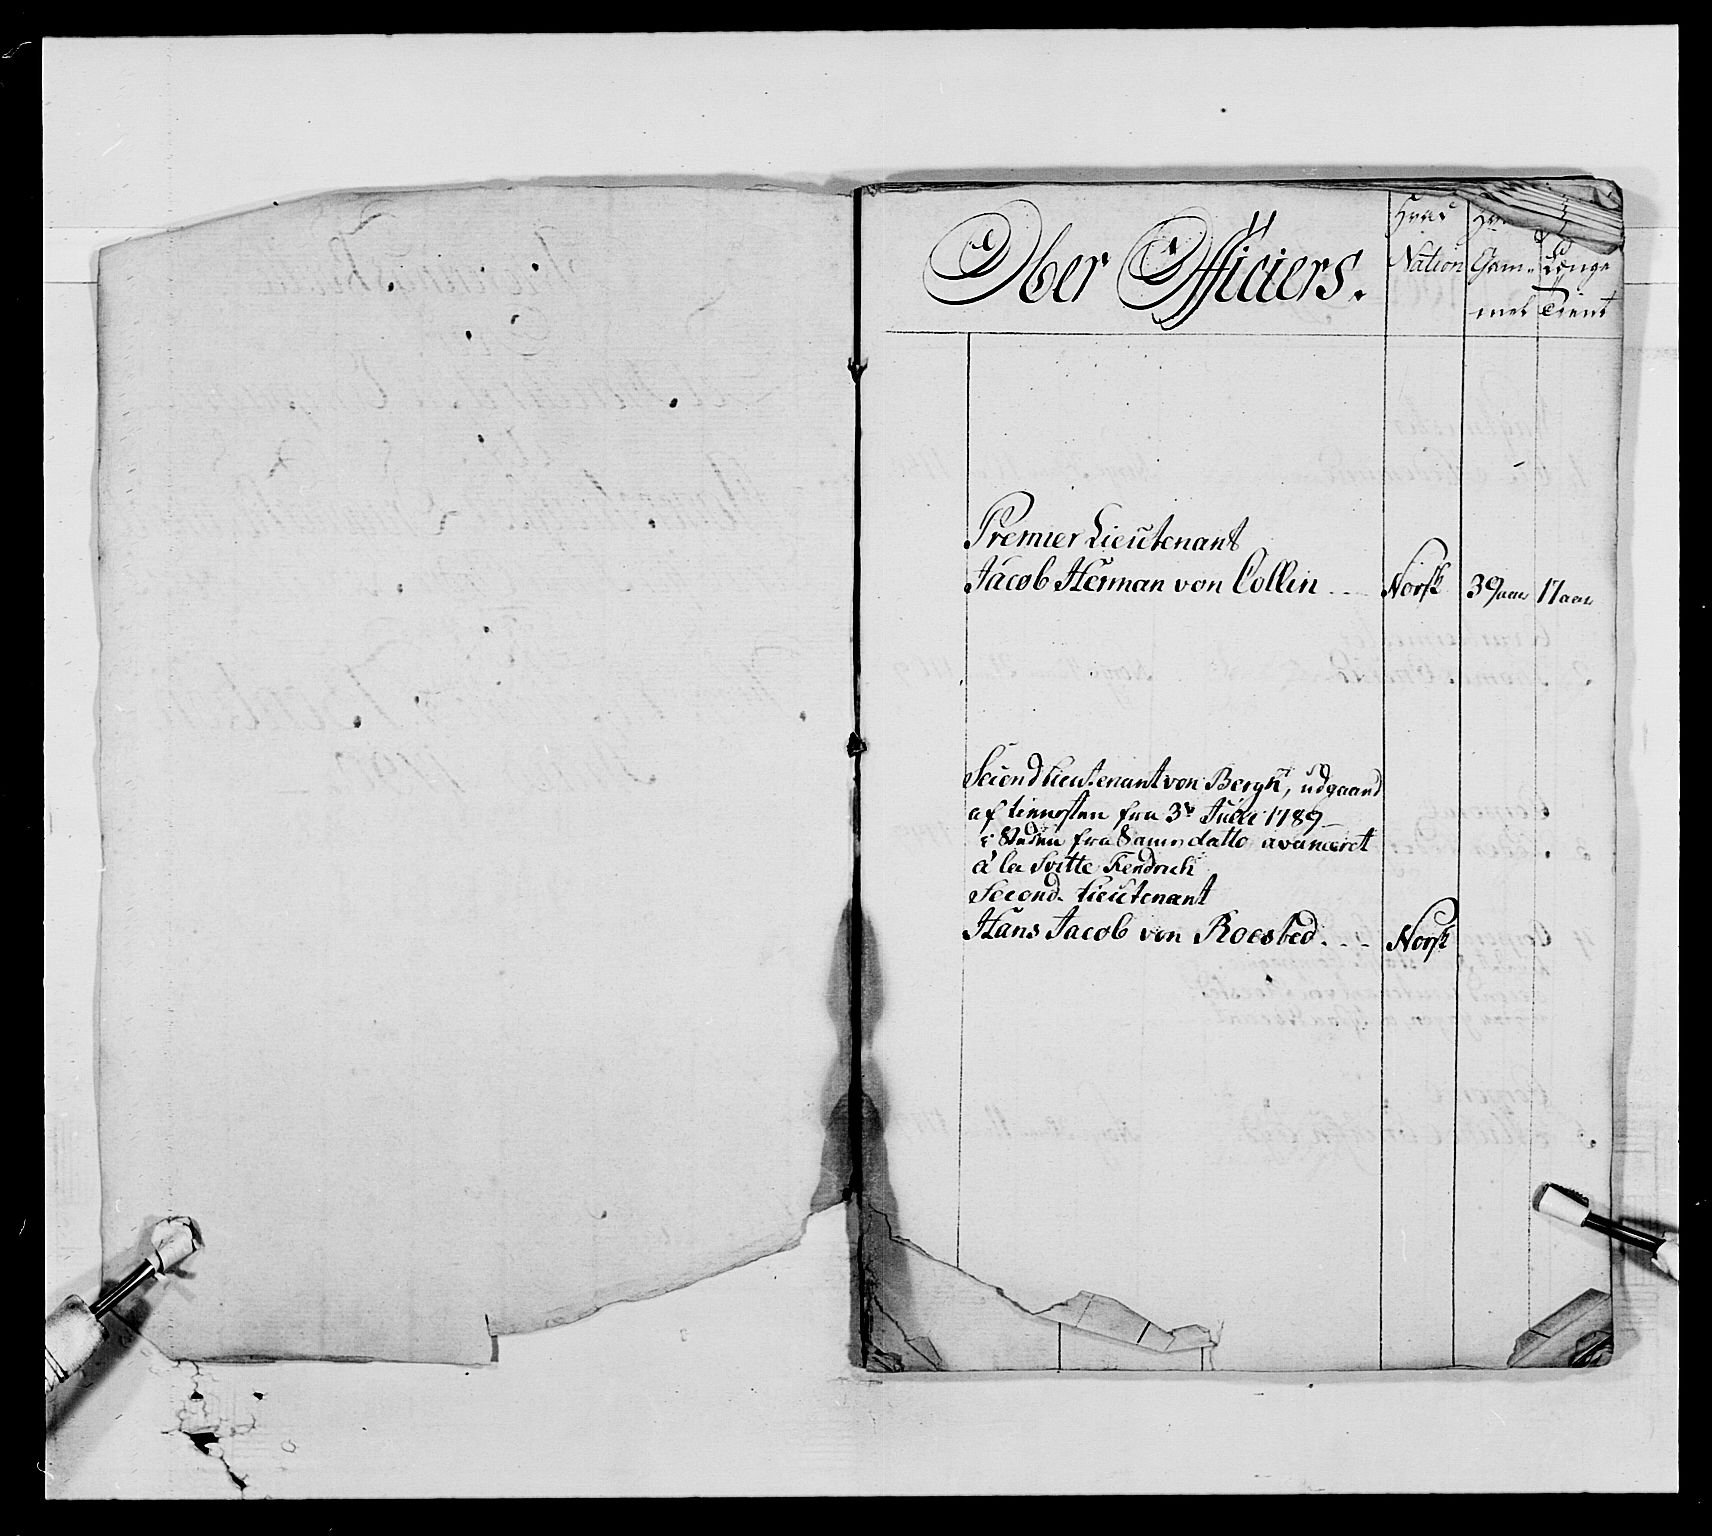 Ober Officiers.
Hvad
Nation
Gam-
mel
Længe
Tient
Premier Lieutenant
Jacob Herman von Collin
Norsk
39 aar
17 aar
Secondlieutenant von Bergh, udgaaed
af tiennesten fra 3de Julii 1789
i Steden fra Samme datto avanceret
à la Svitte Fendrich
Second Lieutenant
Hans Jacob von Roested
Norsk